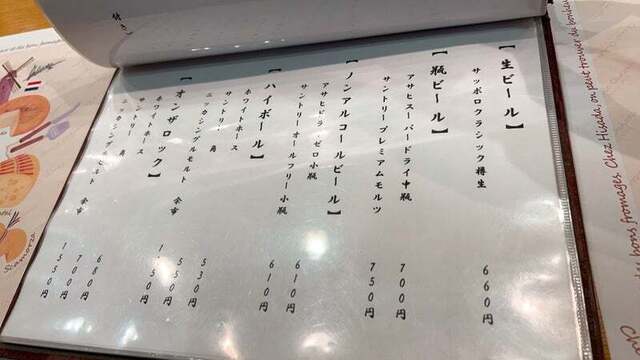 【生ビール】
サッポロクラシック樽生 660円
【瓶ビール】
アサヒスーパードライ中瓶 700円
サントリープレミアムモルツ 750円
【ノンアルコールビール】
アサヒドライゼロ小瓶 610円
サントリーオールフリー小瓶 610円
【ハイボール】
ホワイトホース
サントリー 角 530円
ニッカシングルモルト 余市 550円
【オンザロック】
ホワイトホース 680円
サントリー 角 700円
ニッカシングルモルト 余市
bons fromages. Chez Hisada, on peut trouver du bonheur
Scamorza